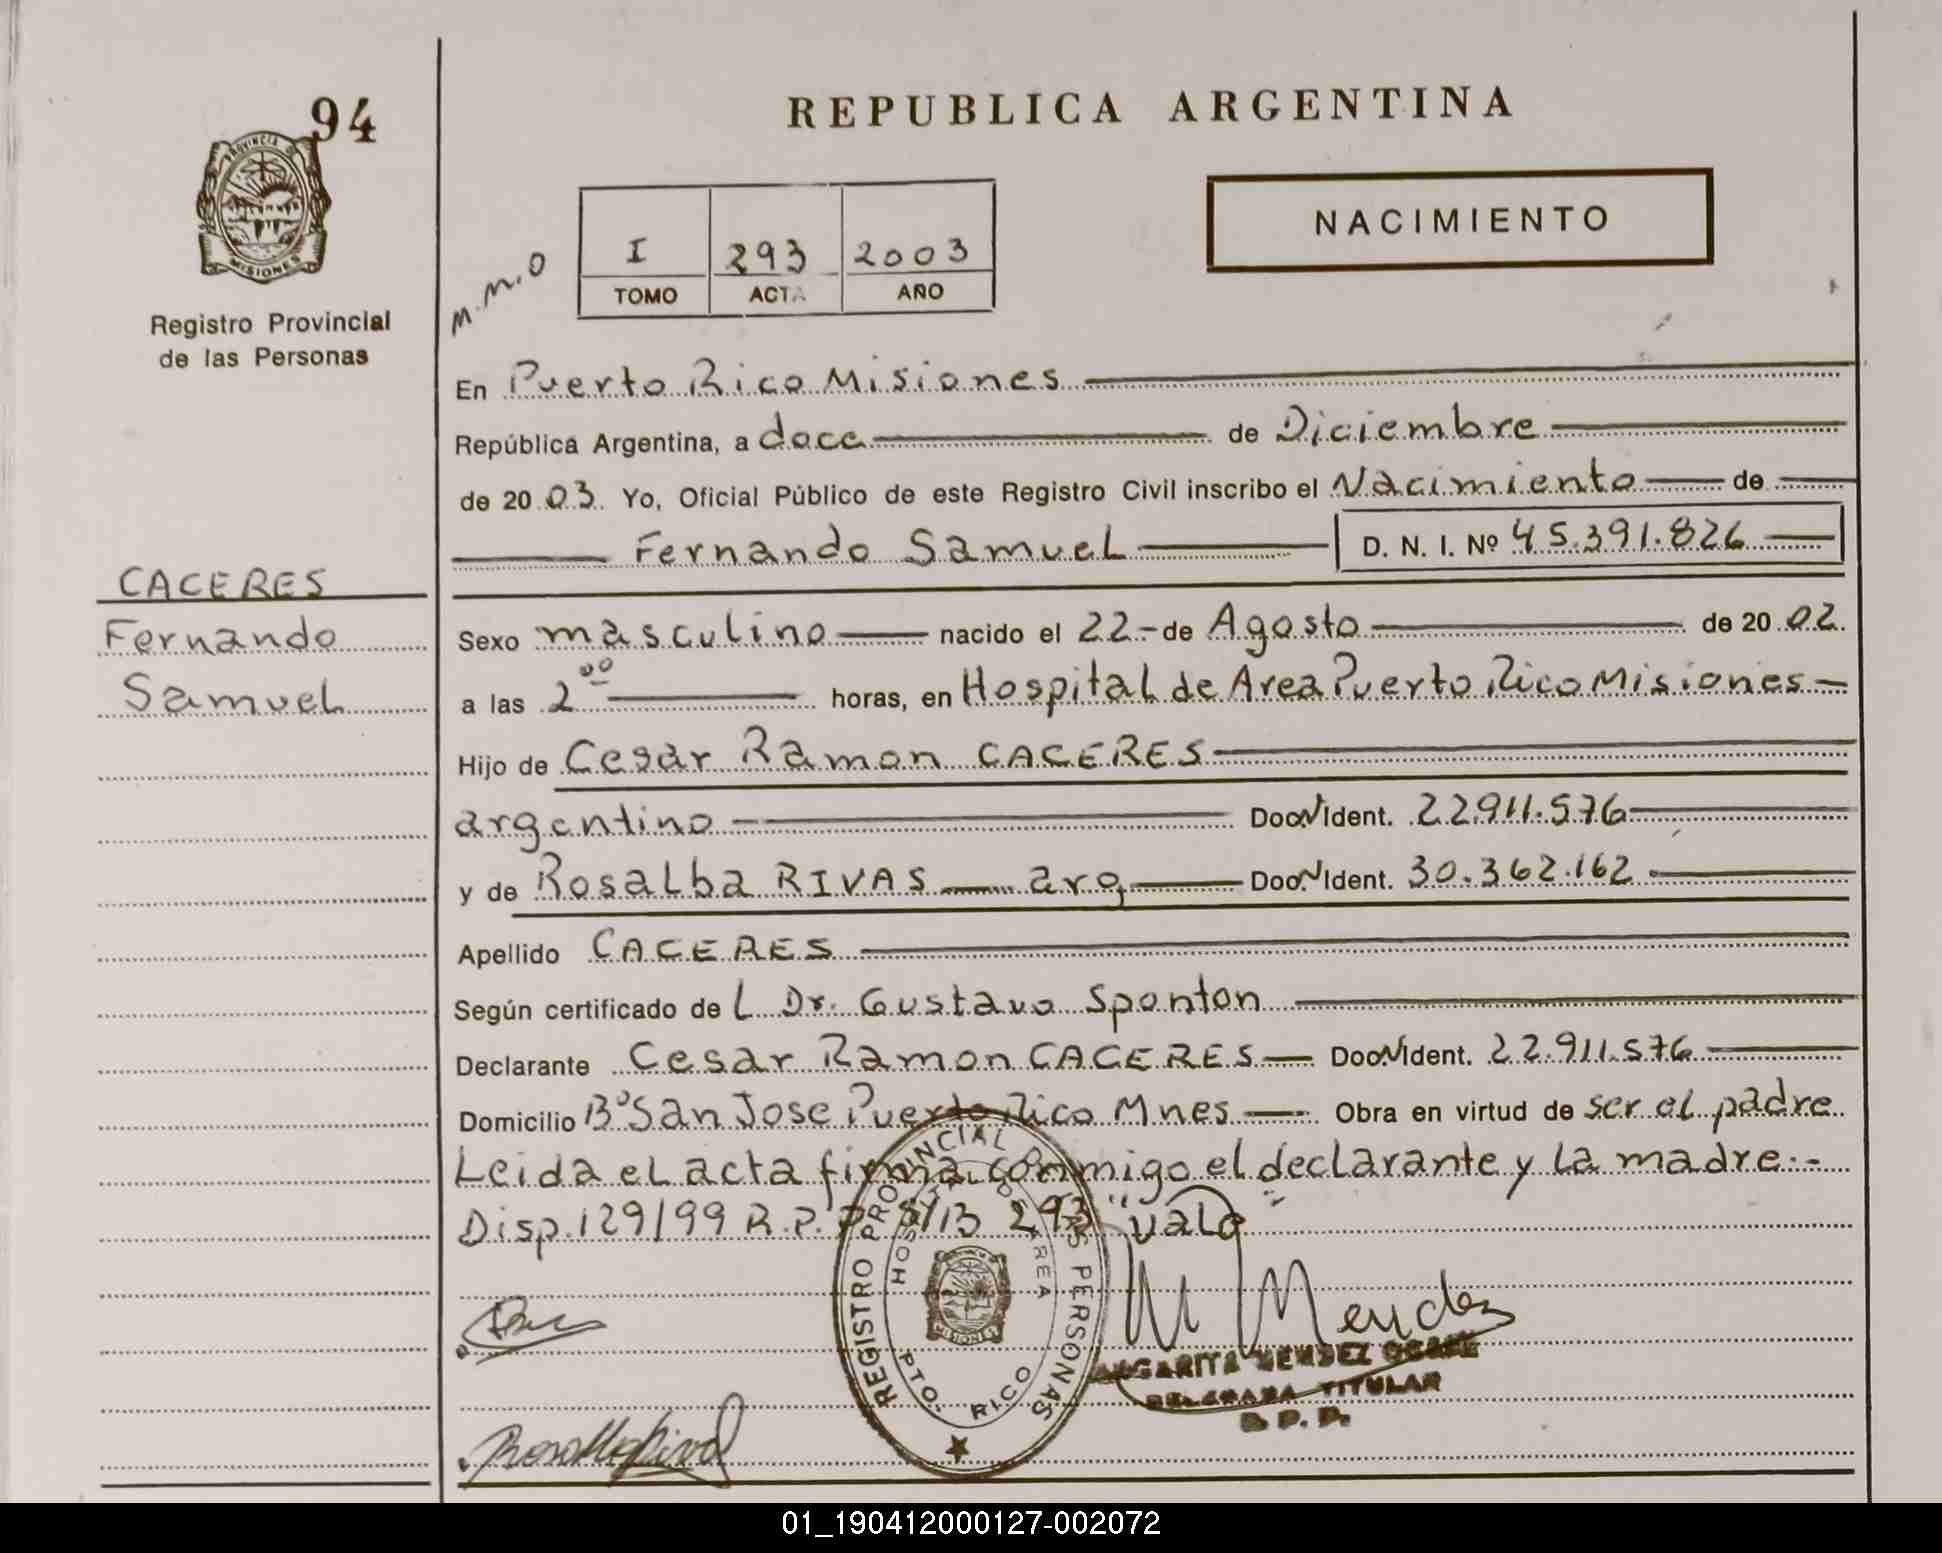 94
PROVINCIA DE
MISIONES
Registro Provincial
de las Personas
CACERES
Fernando
Samuel
REPUBLICA ARGENTINA
NACIMIENTO
M.M.O
I 293 2003
TOMO ACTA AÑO
En Puerto Rico Misiones
República Argentina, a doce de Diciembre
de 20 03. Yo, Oficial Público de este Registro Civil inscribo el Nacimiento de
Fernando Samuel D. N. I. Nº 45.391.826
Sexo masculino nacido el 22-de Agosto de 20 02.
a las 2 00 horas, en Hospital de Area Puerto Rico Misiones
Hijo de Cesar Ramon CACERES
argentino Doc. Ident. 22.911.576
y de Rosalba RIVAS arg Doc. Ident. 30.362.162
Apellido CACERES
Según certificado de L Dr. Gustavo Sponton
Declarante Cesar Ramon CACERES Doc. Ident. 22.911.576
Domicilio Bº San Jose Puerto Rico Mnes Obra en virtud de ser el padre
Leida el acta firma conmigo el declarante y la madre.-
Disp. 129/99 R.P.P. S/B 293 "vale"
REGISTRO PROVINCIAL DE LAS PERSONAS
HOSPITAL DE AREA
PTO. RICO
MISIONES
M Mendez
MARGARITA MENDEZ
DELEGADA TITULAR
Rosalba Rivas
01_190412000127-002072